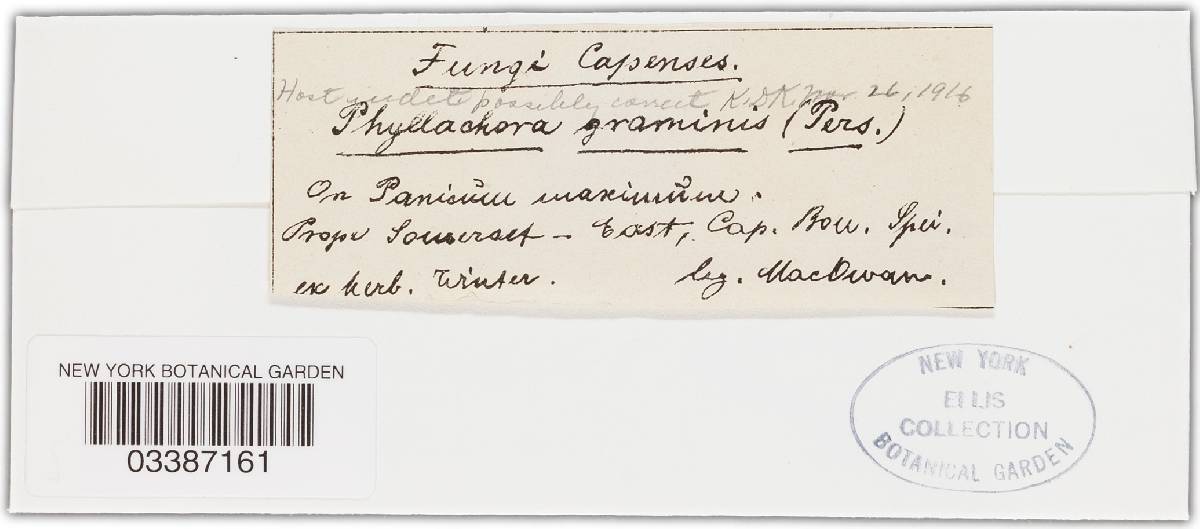 Fungi Capenses.
Host indet. possibly correct K.D.K. Nov. 26, 1916
Phyllachora graminis (Pers.)
On Panicum maximum.
Prope Somerset - East, Cap. Bon. Spei.
ex herb. Winter. leg. MacOwan.
NEW YORK BOTANICAL GARDEN
03387161
NEW YORK
ELLIS
COLLECTION
BOTANICAL GARDEN